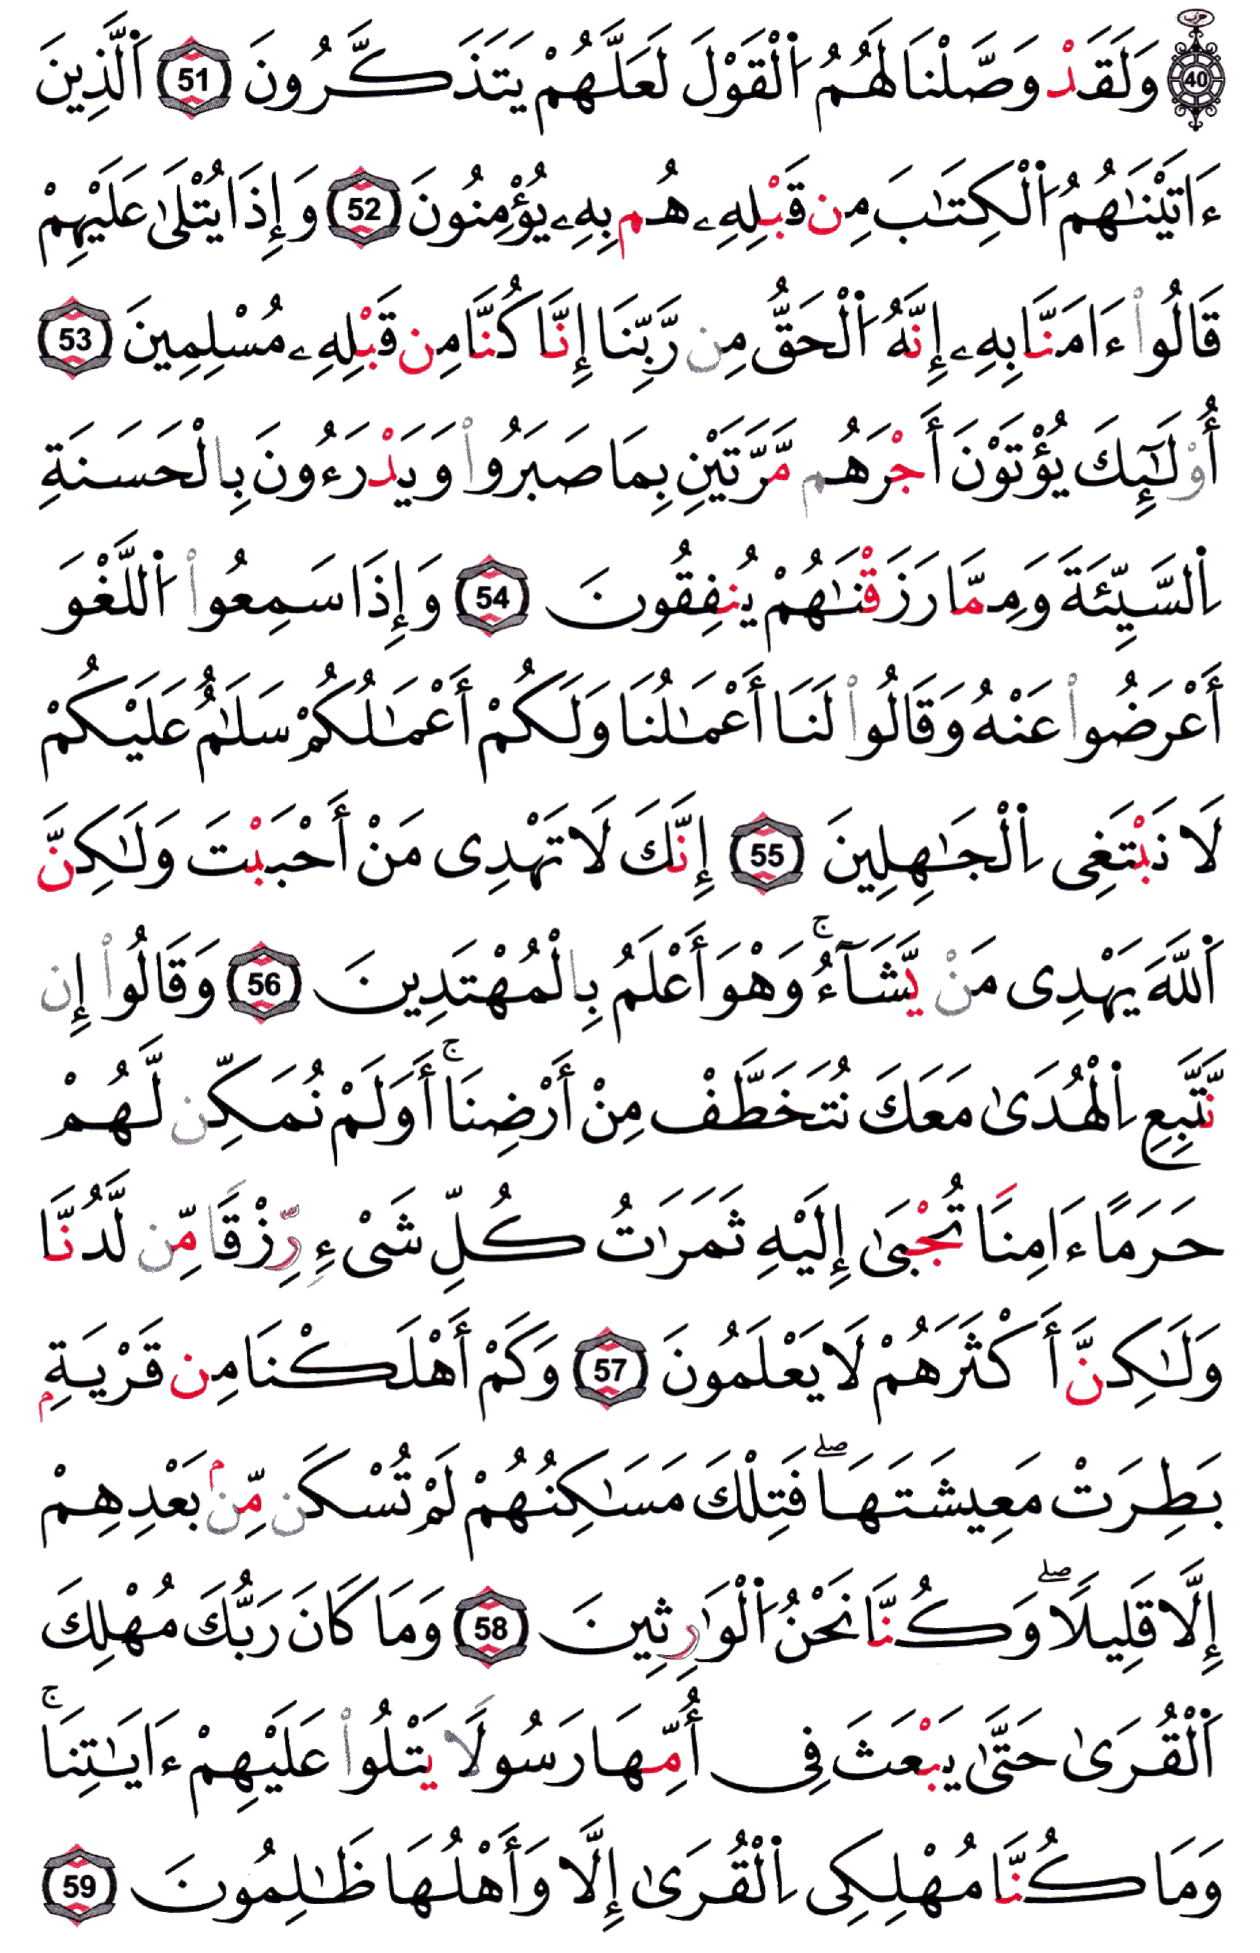 حزب 40 وَلَقَدْ وَصَّلْنَا لَهُمُ اُ۬لْقَوْلَ لَعَلَّهُمْ يَتَذَكَّرُونَ 51 اَ۬لَّذِينَ
ءَاتَيْنَٰهُمُ اُ۬لْكِتَٰبَ مِن قَبْلِهِۦ هُم بِهِۦ يُؤْمِنُونَ 52 وَإِذَا يُتْلَىٰ عَلَيْهِمْ
قَالُوا۟ ءَامَنَّا بِهِۦ إِنَّهُ اُ۬لْحَقُّ مِن رَّبِّنَا إِنَّا كُنَّا مِن قَبْلِهِۦ مُسْلِمِينَ 53
أُو۟لَٰٓئِكَ يُؤْتَوْنَ أَجْرَهُم مَّرَّتَيْنِ بِمَا صَبَرُوا۟ وَيَدْرَءُونَ بِالْحَسَنَةِ
اِ۬لسَّيِّئَةَ وَمِمَّا رَزَقْنَٰهُمْ يُنفِقُونَ 54 وَإِذَا سَمِعُوا۟ اُ۬للَّغْوَ
أَعْرَضُوا۟ عَنْهُ وَقَالُوا۟ لَنَا أَعْمَٰلُنَا وَلَكُمْ أَعْمَٰلُكُمْ سَلَٰمٌ عَلَيْكُمْ
لَا نَبْتَغِى اِ۬لْجَٰهِلِينَ 55 إِنَّكَ لَا تَهْدِى مَنْ أَحْبَبْتَ وَلَٰكِنَّ
اَ۬للَّهَ يَهْدِى مَنْ يَّشَآءُ ۚ وَهْوَ أَعْلَمُ بِالْمُهْتَدِينَ 56 وَقَالُوا۟ إِن
نَّتَّبِعِ اِ۬لْهُدَىٰ مَعَكَ نُتَخَطَّفْ مِنْ أَرْضِنَا ۚ أَوَلَمْ نُمَكِّن لَّهُمْ
حَرَمًا ءَامِنًا تُجْبَىٰ إِلَيْهِ ثَمَرَٰتُ كُلِّ شَىْءٍ رِّزْقًا مِّن لَّدُنَّا
وَلَٰكِنَّ أَكْثَرَهُمْ لَا يَعْلَمُونَ 57 وَكَمْ أَهْلَكْنَا مِن قَرْيَةِۭ
بَطِرَتْ مَعِيشَتَهَا ۖ فَتِلْكَ مَسَٰكِنُهُمْ لَمْ تُسْكَن مِّنۢ بَعْدِهِمْ
إِلَّا قَلِيلًا ۖ وَكُنَّا نَحْنُ اُ۬لْوَٰرِثِينَ 58 وَمَا كَانَ رَبُّكَ مُهْلِكَ
اَ۬لْقُرَىٰ حَتَّىٰ يَبْعَثَ فِى أُمِّهَا رَسُولًا يَتْلُوا۟ عَلَيْهِمْ ءَايَٰتِنَا ۚ
وَمَا كُنَّا مُهْلِكِى اِ۬لْقُرَىٰ إِلَّا وَأَهْلُهَا ظَٰلِمُونَ 59